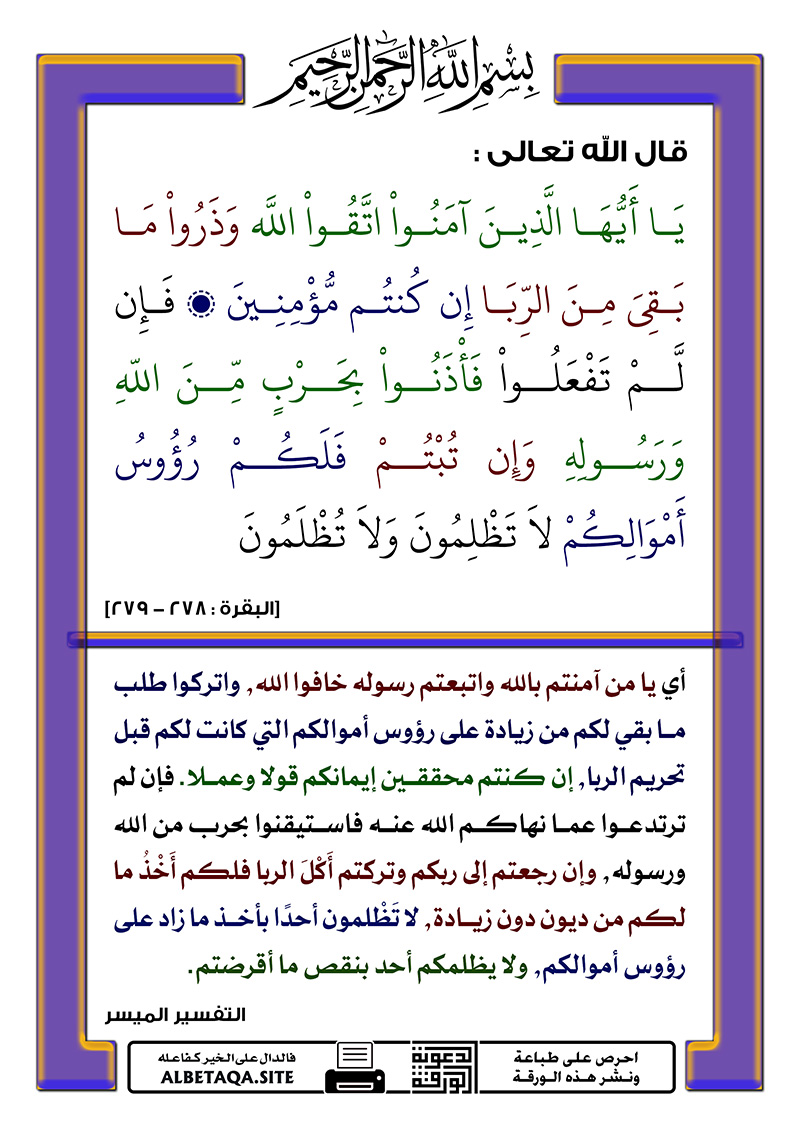 بسم الله الرحمن الرحيم
قال الله تعالى :
يَا أَيُّهَا الَّذِينَ آمَنُواْ اتَّقُواْ اللَّه وَذَرُواْ مَا
بَقِىَ مِنَ الرِّبَا إِن كُنتُم مُّؤْمِنِينَ ۞ فَإِن
لَّمْ تَفْعَلُواْ فَأْذَنُواْ بِحَرْبٍ مِّنَ اللّهِ
وَرَسُولِهِ وَإِن تُبْتُمْ فَلَكُمْ رُؤُوسُ
أَمْوَالِكُمْ لاَ تَظْلِمُونَ وَلاَ تُظْلَمُونَ
[البقرة : ٢٧٨ – ٢٧٩]
أي يا من آمنتم بالله واتبعتم رسوله خافوا الله, واتركوا طلب
ما بقي لكم من زيادة على رؤوس أموالكم التي كانت لكم قبل
تحريم الربا, إن كنتم محققين إيمانكم قولا وعملا. فإن لم
ترتدعوا عما نهاكم الله عنه فاستيقنوا بحرب من الله
ورسوله, وإن رجعتم إلى ربكم وتركتم أَكْلَ الربا فلكم أَخْذُ ما
لكم من ديون دون زيادة, لا تَظْلمون أحدًا بأخذ ما زاد على
رؤوس أموالكم, ولا يظلمكم أحد بنقص ما أقرضتم.
التفسير الميسر
احرص على طباعة
ونشر هذه الورقة
الورقة الدعوية
فالدال على الخير كفاعله
ALBETAQA.SITE